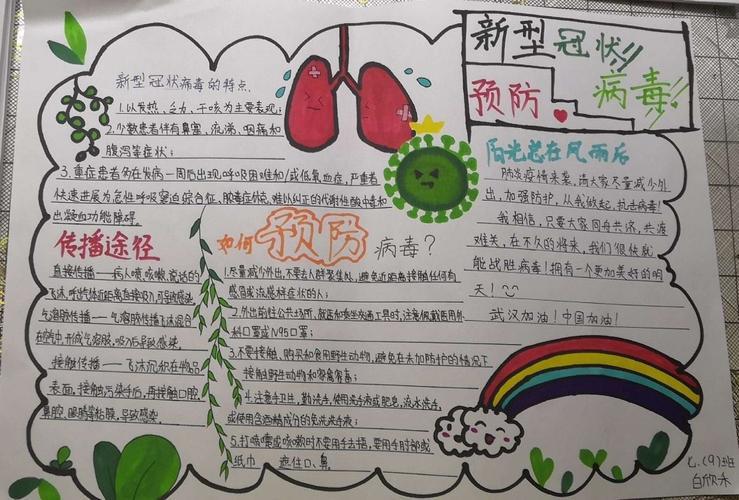 新型冠状
病毒
预防
新型冠状病毒的特点.
1.以发热、乏力、干咳为主要表现;
2.少数患者伴有鼻塞、流涕、咽痛和
腹泻等症状;
3.重症患者多在发病一周后出现呼吸困难和/或低氧血症,严重者
快速进展为急性呼吸窘迫综合征、脓毒症休克、难以纠正的代谢性酸中毒和
出凝血功能障碍。
传播途径
直接传播——病人喷嚏、咳嗽、说话的
飞沫,呼出气体近距离直接吸入,可导致感染
气溶胶传播——气溶胶传播飞沫混合
在空气中,形成气溶胶,吸入后导致感染。
接触传播——飞沫沉积在物品
表面,接触污染手后,再接触口腔、
鼻腔、眼睛等粘膜,导致感染.
如何预防病毒?
1.尽量减少外出,不要去人群聚集处,避免近距离接触任何有
感冒或流感样症状的人;
2.外出前往公共场所、就医和乘坐交通工具时,注意佩戴医用外
科口罩或N95口罩;
3.不要接触、购买和食用野生动物,避免在未加防护的情况下
接触野生动物和家禽家畜;
4.注意手卫生,勤洗手,使用洗手液或肥皂,流水洗手,
或使用含酒精成分的免洗洗手液;
5.打喷嚏或咳嗽时不要用手去捂,要用手肘部或
纸巾 遮住口、鼻.
阳光总在风雨后
肺炎疫情来袭,请大家尽量减少外
出,加强防护,从我做起,抗击病毒!
我相信,只要大家同舟共济,共渡
难关,在不久的将来,我们很快就
能战胜病毒!拥有一个更加美好的明
天!
武汉加油!中国加油!
七.(9)班
白欣禾